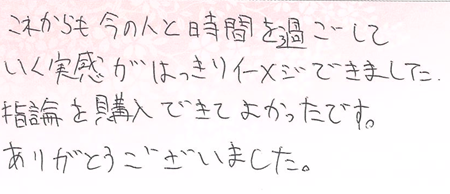 これからも今の人と時間を過ごして
いく実感がはっきりイメジできました.
指論を購入できてよかったです。
ありがとうございました。